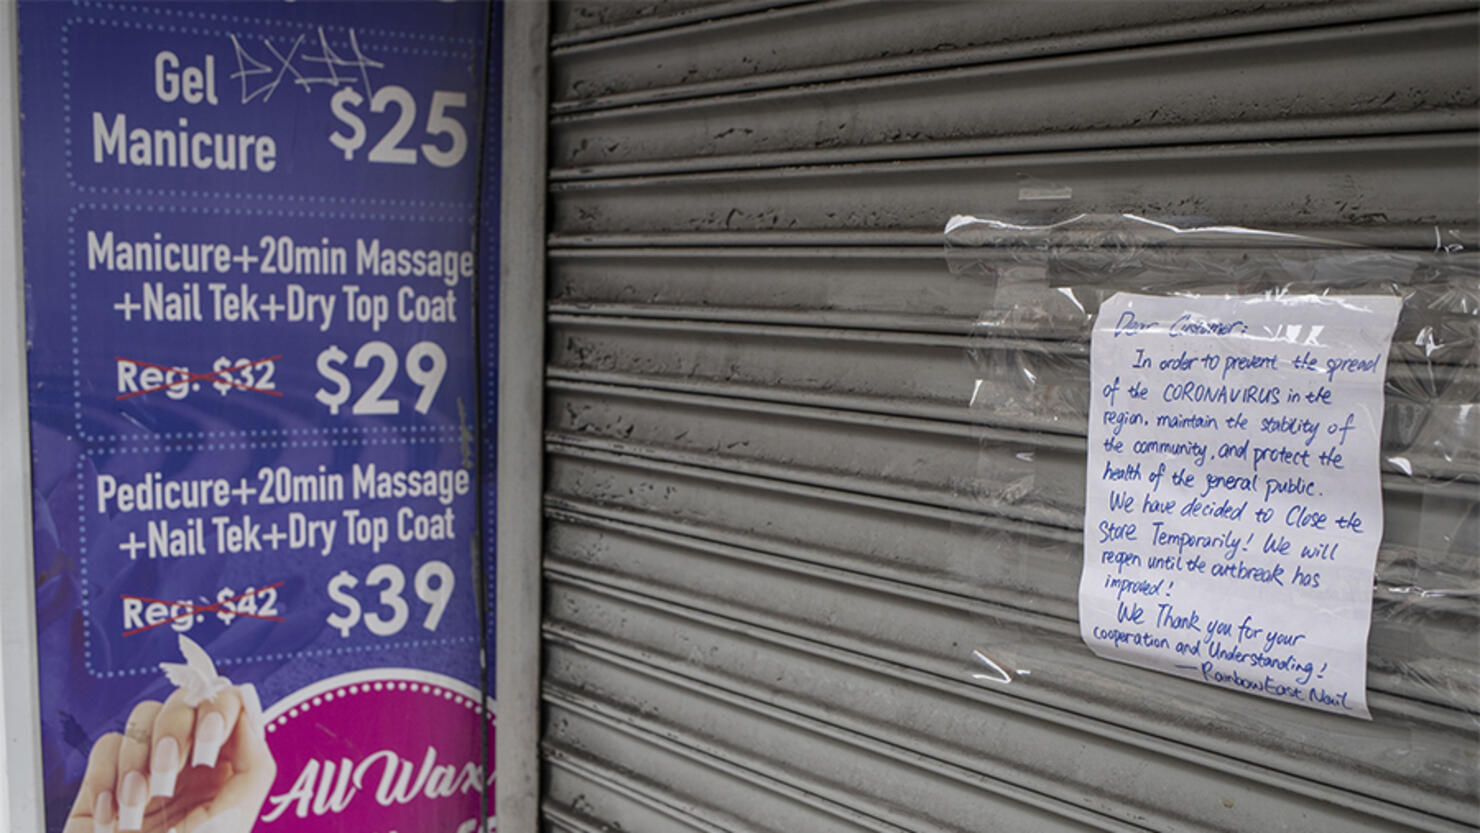 Gel
Manicure
$25
Manicure+20min Massage
+Nail Tek+Dry Top Coat
Reg. $32
$29
Pedicure+20min Massage
+Nail Tek+Dry Top Coat
Reg. $42
$39
All Wax
Dear Customer:
In order to prevent the spread
of the CORONAVIRUS in the
region, maintain the stability of
the community, and protect the
health of the general public.
We have decided to Close the
Store Temporarily! We will
reopen until the outbreak has
improved!
We Thank you for your
cooperation and Understanding!
— Rainbow East Nail